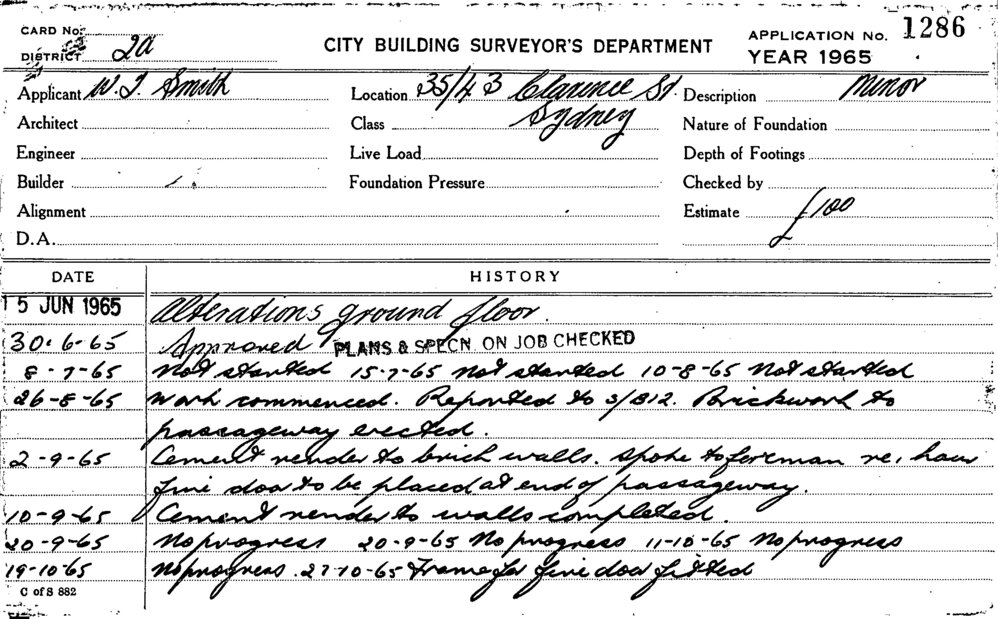 CARD No.
DISTRICT 2a
CITY BUILDING SURVEYOR'S DEPARTMENT
APPLICATION No. 1286
YEAR 1965
Applicant W. J. Smith Location 35/43 Clarence St. Description Minor
Architect Class Sydney Nature of Foundation
Engineer Live Load Depth of Footings
Builder Foundation Pressure Checked by
Alignment Estimate £100
D.A.
DATE HISTORY
15 JUN 1965 Alterations ground floor.
30-6-65 Approved PLANS & SPECN. ON JOB CHECKED
8-7-65 Not started 15-7-65 Not started 10-8-65 Not started
26-8-65 Work commenced. Reported to S/B12. Brickwork to
passageway erected.
2-9-65 Cement render to brick walls. Spoke to foreman re,
fire door to be placed at end of passageway.
10-9-65 Cement render to walls completed.
20-9-65 No progress 20-9-65 No progress 11-10-65 No progress
19-10-65 No progress. 27-10-65 Frame for fire door fitted
C of S 882